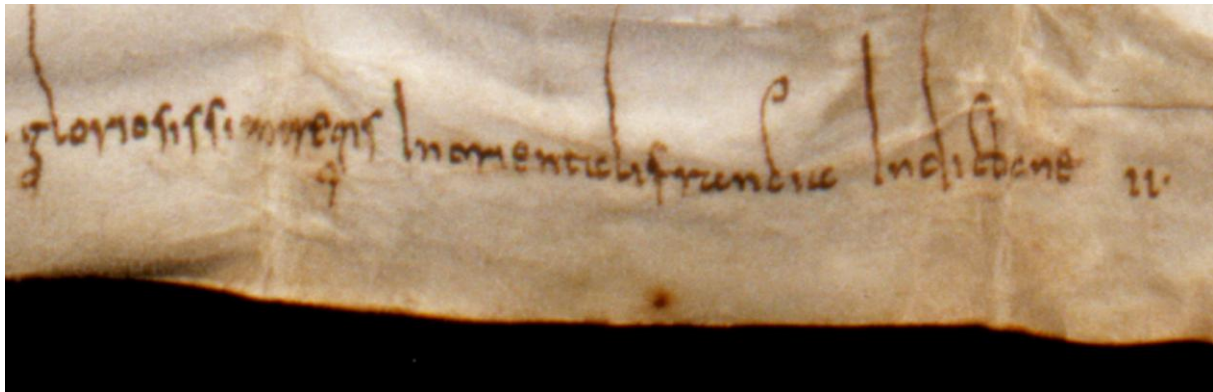 gloriosissimi regis In orientali francia Indictione II.